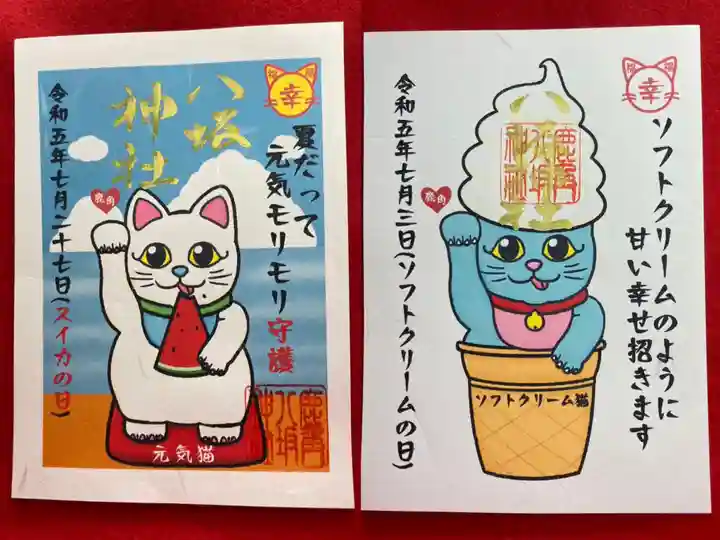 福
福
幸
夏だって
元気モリモリ守護
八坂
神社
鹿角
令和五年七月二十七日(スイカの日)
元気猫
鹿角
八坂
神社
福
福
幸
ソフトクリームのように
甘い幸せ招きます
鹿角
八坂
神社
鹿角
令和五年七月三日(ソフトクリームの日)
ソフトクリーム猫